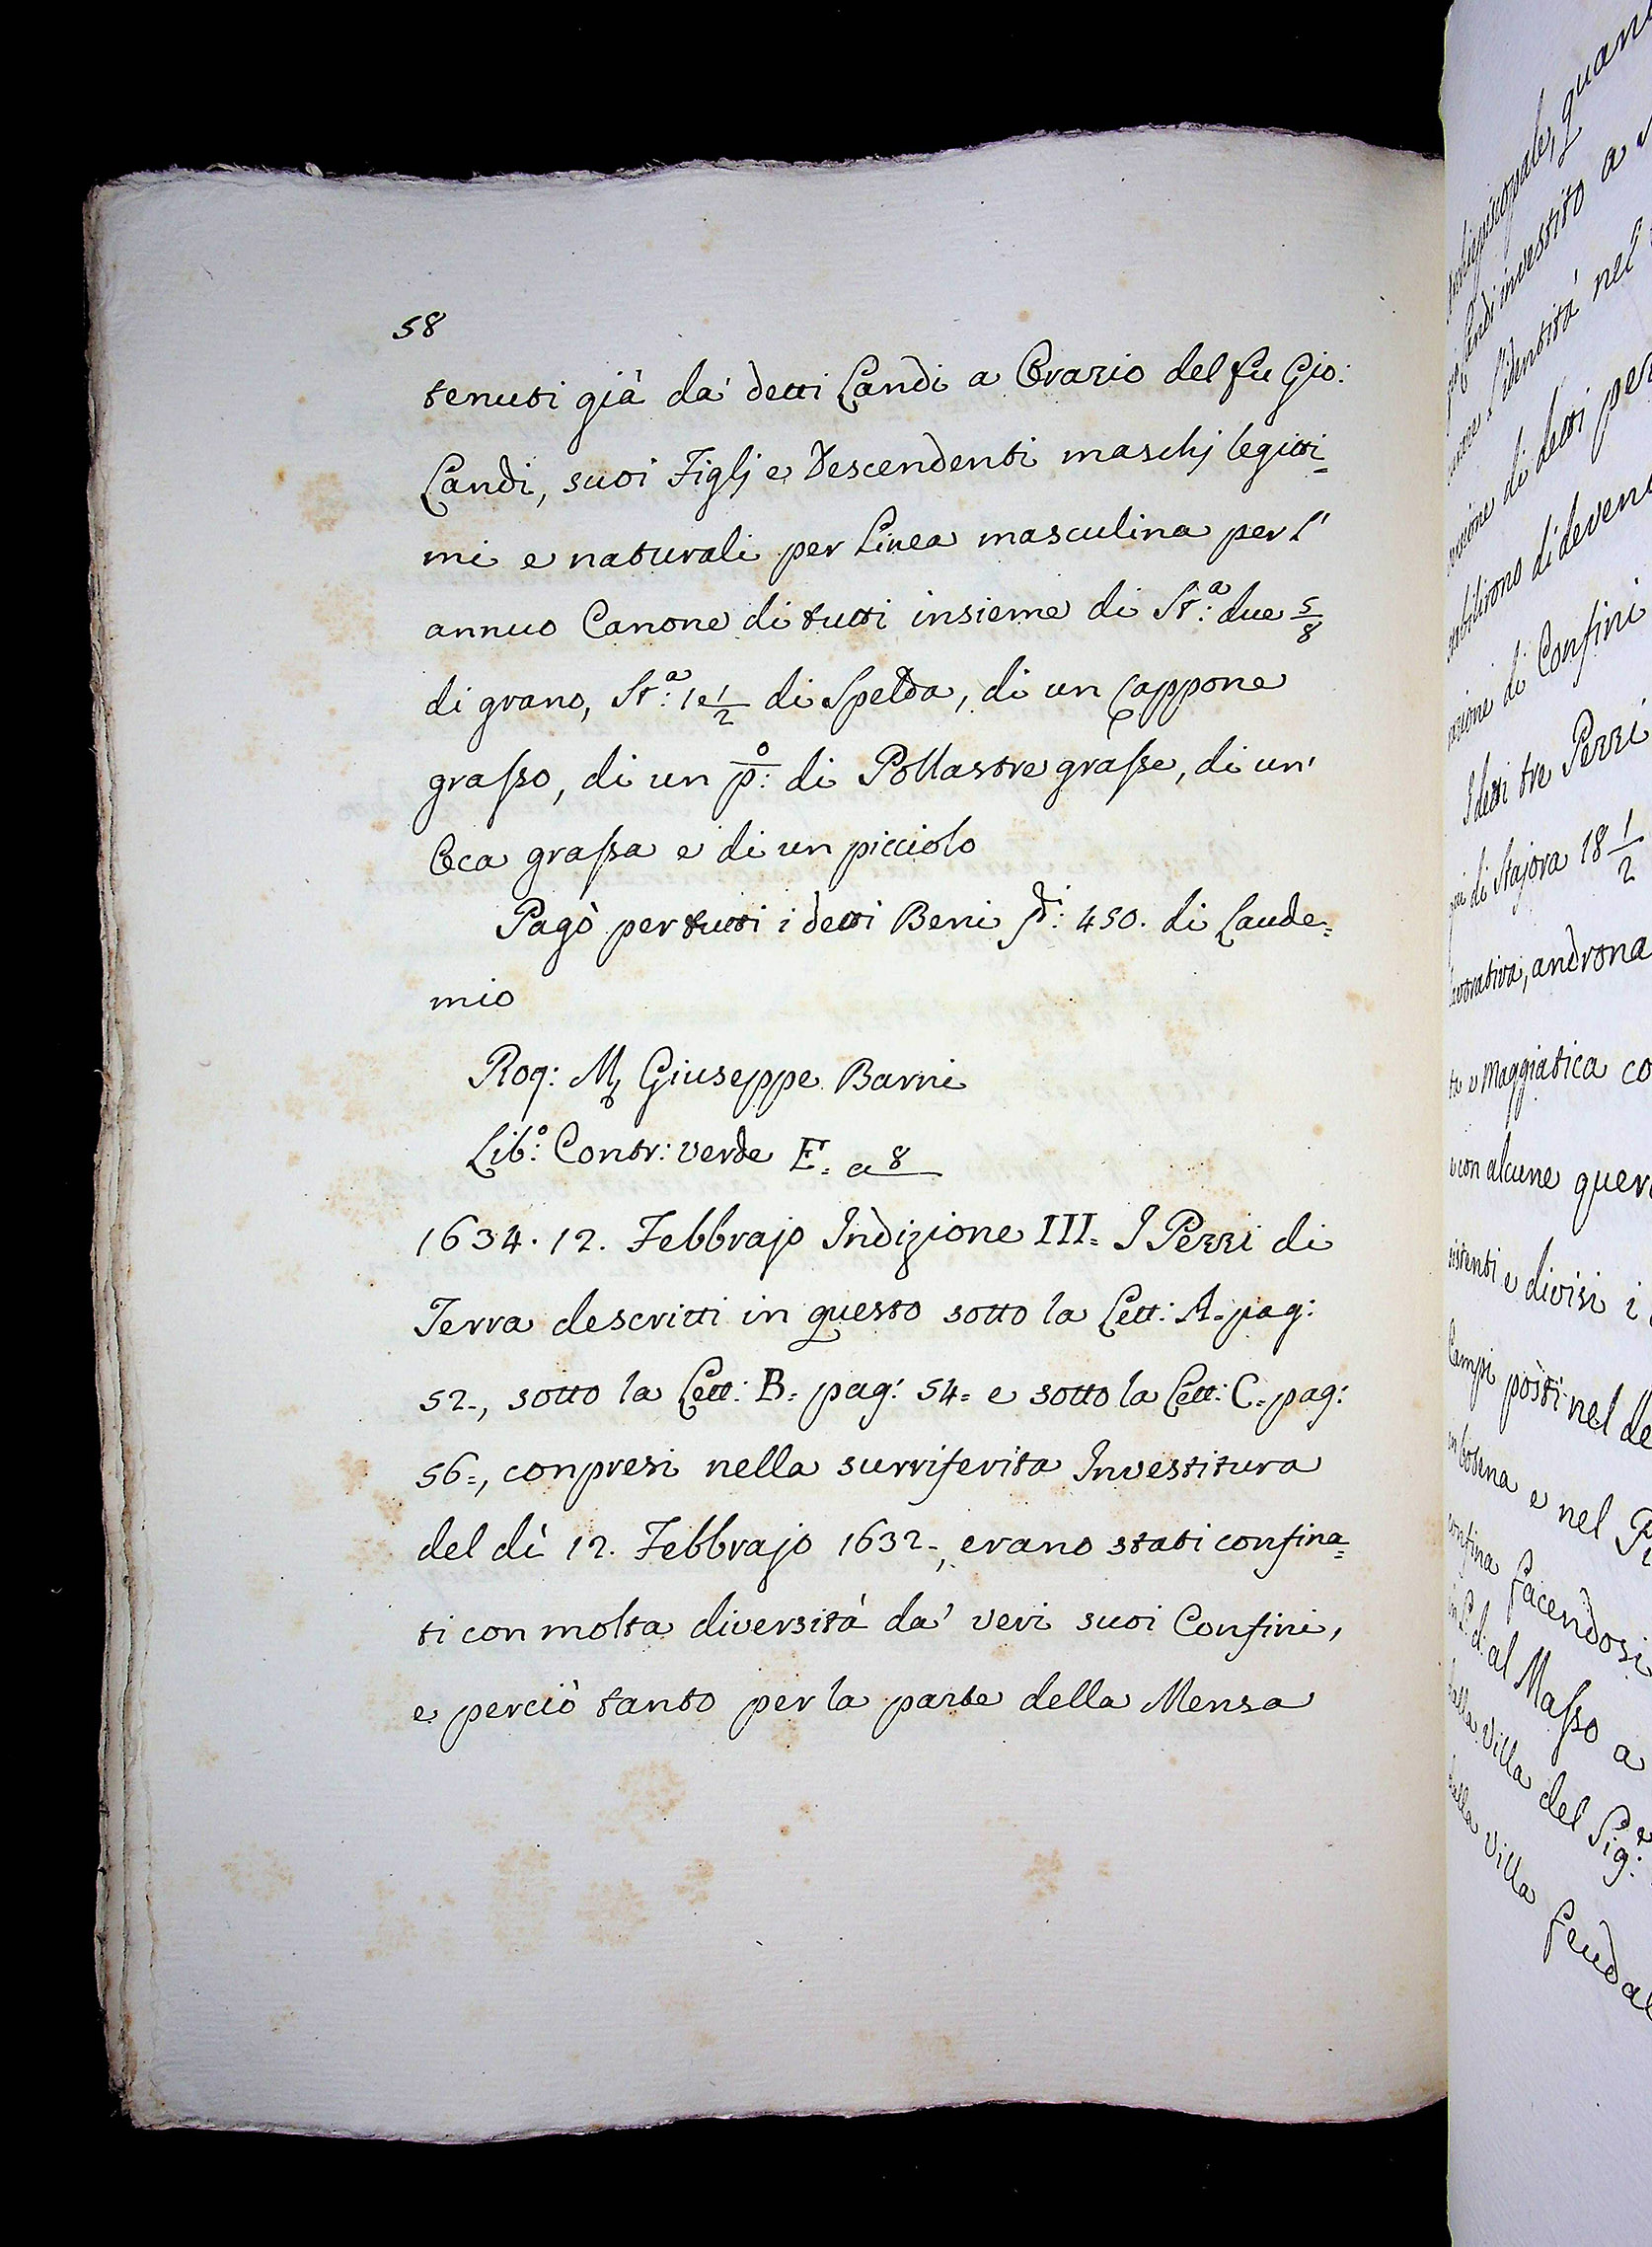 58
tenuti già da' detti Landi a Orazio del fu Gio:
Landi, suoi Figlj e Descendenti maschj legitti=
mi e naturali per Linea masculina per l'
annuo Canone di tutti insieme di St:ª due 5/8
di grano, St:ª 1 e 1/2 di Spelda, di un Cappone
grasso, di un p:º di Pollastre grasse, di un'
Oca grassa e di un picciolo
Pagò per tutti i detti Beni 450. di Laude=
mio
Rog: M Giuseppe Barni
Lib:º Contr: verde E= a 8
1634. 12. Febbrajo Indizione III= I Pezzi di
Terra descritti in questo sotto la Lett: A= pag:
52=, sotto la Lett: B= pag: 54= e sotto la Lett: C= pag:
56=, conpresi nella surriferita Investitura
del dì 12. Febbrajo 1632=, erano stati confina=
ti con molta diversità da' veri suoi Confini,
e perciò tanto per la parte della Mensa
investito a
l'identità nel
di detti
di Confini
I detti tre Pezzi
di Stajora 18 1/2
androna
e Maggiatica
con alcune
e divisi i
Campi posti nel
e nel
facendosi
al Masso a
Villa del Sig:
Villa